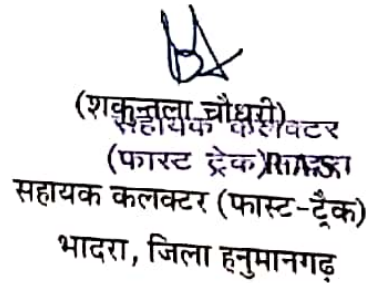 (शकुन्तला चौधरी)
सहायक कलक्टर
(फास्ट ट्रेक)
सहायक कलक्टर (फास्ट-ट्रैक)
भादरा, जिला हनुमानगढ़